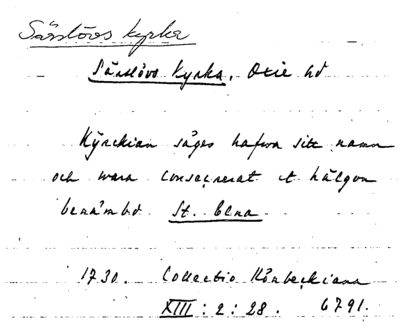 Särslövs kyrka
Särslövs Kyrka, Oxie hd
Kÿrckian säges hafwa sitt namn
och wara consecrerat t hälgon
benämbd St. Elena
1730. Collectio Rönbeckiana
XIII : 2 : 28. 6791.